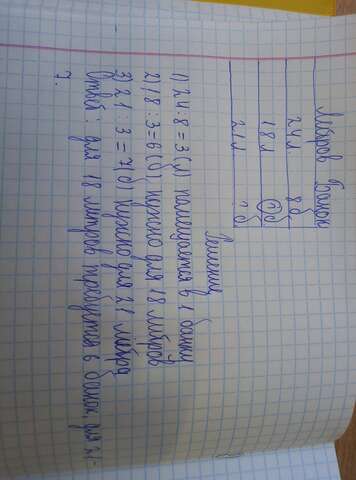 Литров Банок
24 л. 8 б
18 л ? б
21 л ? б
Решение
1) 24:8=3(л) помещается в 1 банки
2) 18:3=6(б) нужно для 18 литров
3) 21:3=7(б) нужно для 21 литра
Ответ: для 18 литров требуется 6 банок, для 21-
7.